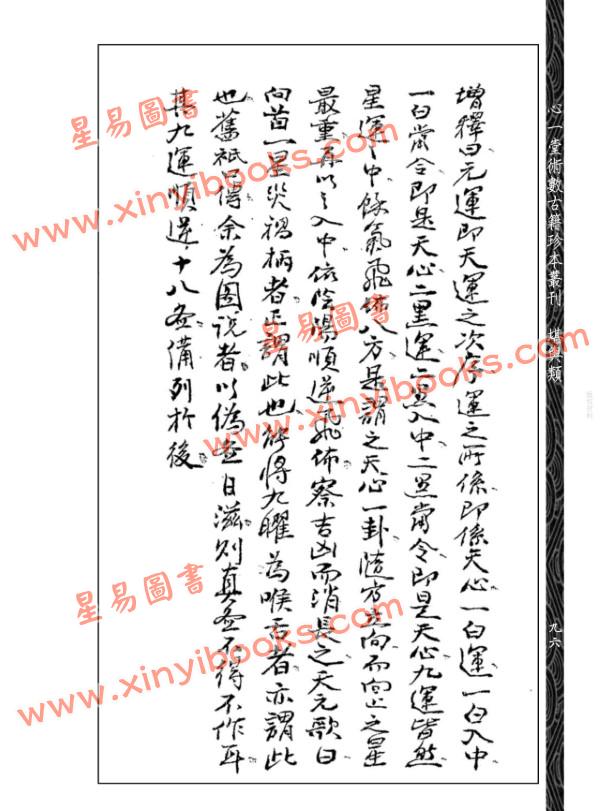 心一堂術數古籍珍本叢刊 堪輿類
九六
增釋曰元運即天運之次序運之所係即係天心一白運一白入中
一白當令即是天心二黑運二黑入中二黑當令即是天心九運皆然
星運中餘氣飛佈八方是謂之天心一卦隨方立向而向上之星
最重再以之入中依陰陽順逆飛佈察吉凶而消長之天元歌曰
向首一星災禍柄者正謂此也能將九曜為喉舌者亦謂此
也舊祇得余為圖說者以偽日滋則真不得不作耳
其九運順逆十八備列於後
星易圖書
www.xinyibooks.com
星易圖書
www.xinyibooks.com
星易圖書
www.xinyibooks.com